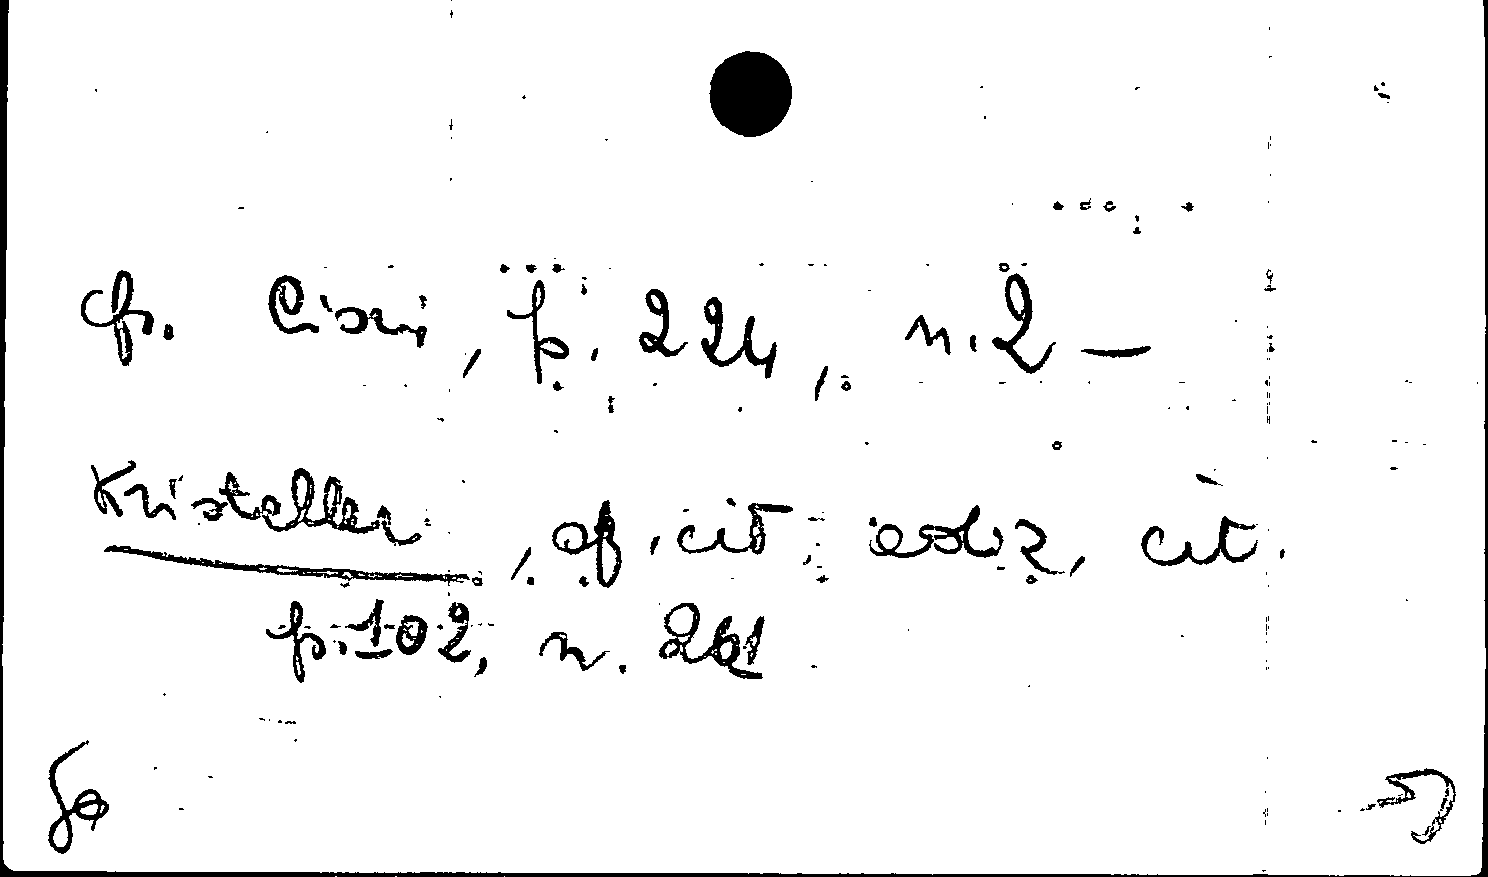 cfr. Cisxi, p. 224, n. 2 —
Kristeller, op. cit, ediz, cit.
p. 102, n. 261